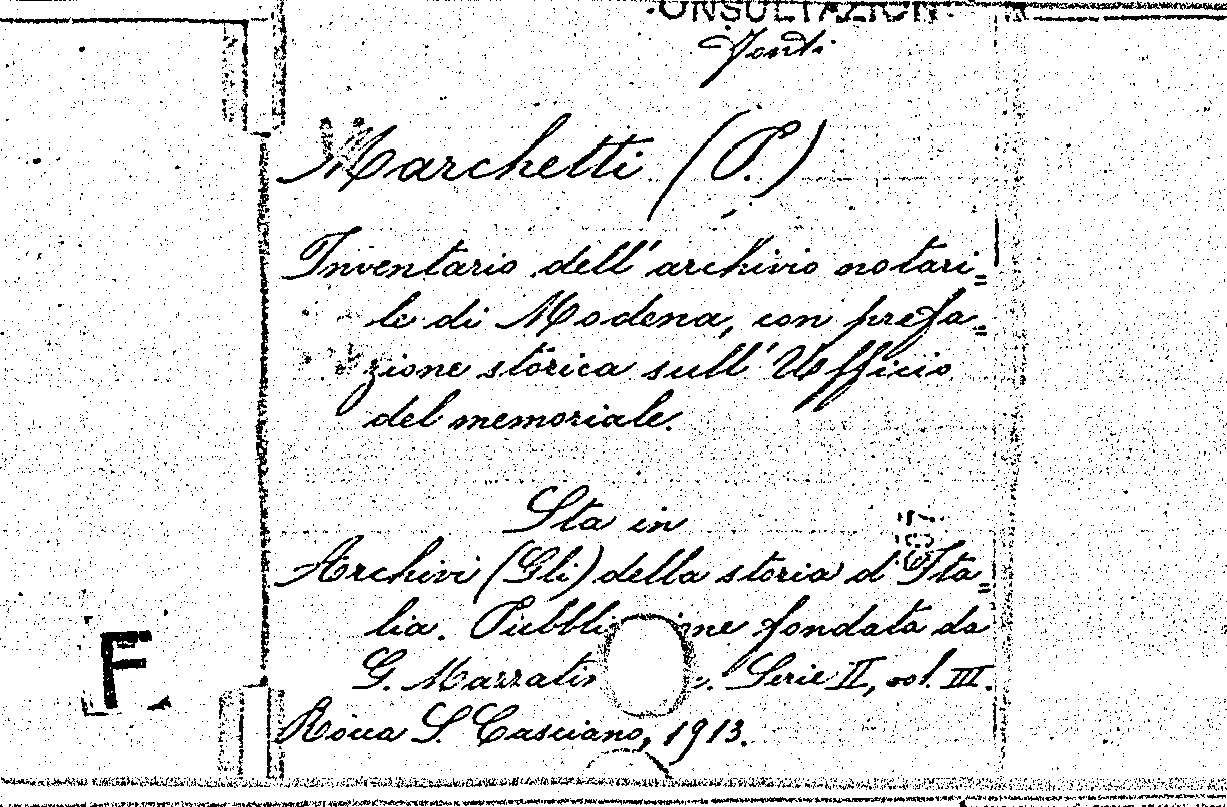 Fonti
Marchetti (P.)
Inventario dell'archivio notari=
le di Modena, con prefa=
zione storica sull'Ufficio
del memoriale.
Sta in
Archivi (Gli) della storia d'Ita=
lia. fondata da
G. Serie II, vol. III.
Rocca S. Casciano, 1913.
F